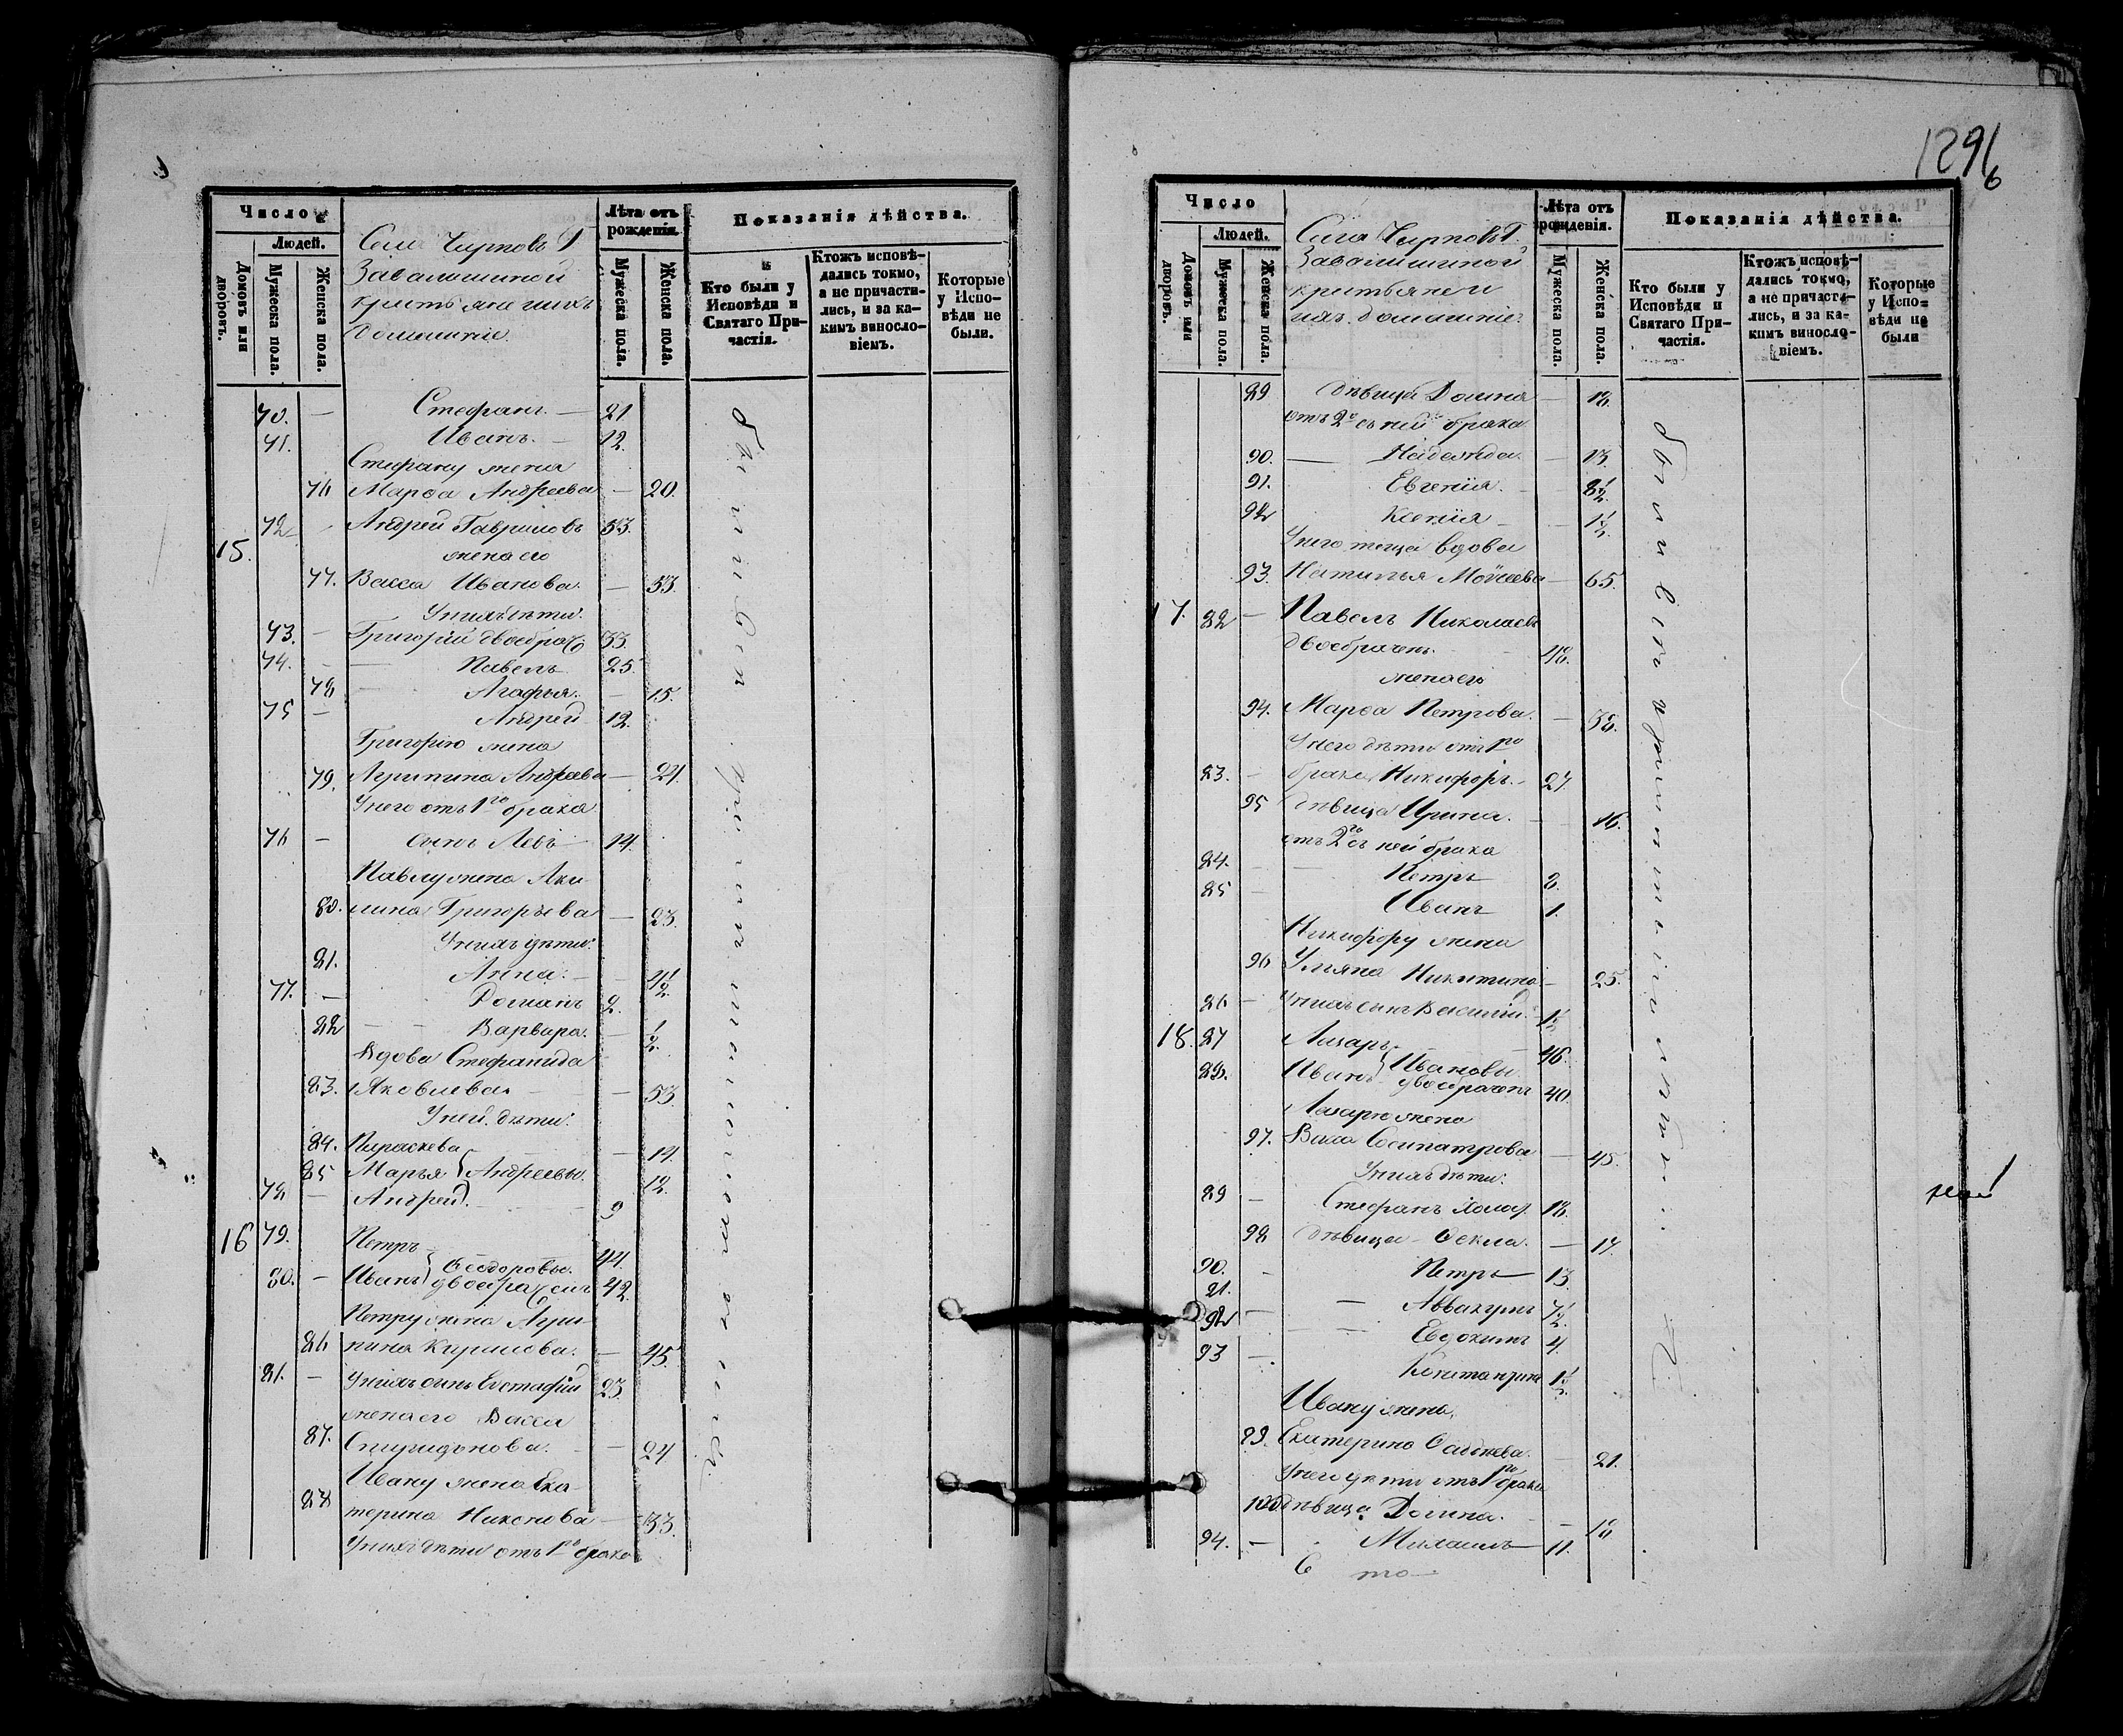 Число
Людей.
Домовъ или дворовъ.
Мужеска пола.
Женска пола.
Лѣта отъ рожденія.
Мужеска пола.
Женска пола.
Показанія дѣйства.
Кто были у Исповѣди и Святаго Причастія.
Ктожъ исповѣдались токмо, а не причастились, и за какимъ винословіемъ.
Которые у Исповѣди не были.
домашніе.
70. — Стефанъ. — 21
71. Иванъ. — 12.
Стефану жена
76 Марѳа Андреева — 20.
15. 72 Андрей Гавриловъ 53.
жена его
77. Васса Иванова. — 53.
У нихъ дѣти:
73. — Григорій двоебрач 33.
74. — Павелъ 25.
78 — Агафья. — 15.
75 — Андрей 12.
Григорію жена
79. Агрипина Андреева — 24.
У него отъ 1го брака
76 — сынъ Левъ 14.
Павлу жена Аки-
80. лина Григорьева — 23.
У нихъ дѣти:
81. Анна. — 4½
77. — Романъ 2.
82 — Варвара. — ½
Вдова Стефанида
83. Яковлева — 53
У ней дѣти:
84. Параскева — 14.
85 Марья Андреевы. 12.
78 — Андрей 9
16 79. Петръ 44.
80. — Иванъ Ѳеодоровы. двоебраченъ 42.
Петру жена Агри-
86 пина Кирилова. — 45.
81. — У нихъ сынъ Евстафій 23.
жена его Васса
87. Спиридонова. — 24
Ивану жена Ека-
88 терина Никонова — 33.
У нихъ дѣти отъ 1го брака
1296
Число
Людей.
Домовъ или дворовъ.
Мужеска пола.
Женска пола.
Лѣта отъ рожденія.
Мужеска пола.
Женска пола.
Показанія дѣйства.
Кто были у Исповѣди и Святаго Причастія.
Ктожъ исповѣдались токмо, а не причастились, и за какимъ винословіемъ.
Которые у Исповѣди не были
крестьяне и
ихъ домашніе.
89 дѣвица Домна — 18.
отъ 2го съ ней брака
90. — Надежда. — 13.
91. Евгенія. — 8½
92 Ксенія — 1½
У него теща вдова
93. Наталья Моѵсеева — 65.
17. 82 — Павелъ Николаевъ
двоебраченъ. 48.
жена его
94. Марѳа Петрова. — 38.
У него дѣти отъ 1го
83. — брака Никифоръ. 27.
95 дѣвица Ирина. — 16.
отъ 2го съ ней брака
84. — Петръ 2.
85 — Иванъ 1.
Никифору жена
96 Ульяна Никитина — 25.
86 — У нихъ сынъ Василій. 1½
18. 87 Лазарь 46.
88. Иванъ Ивановы двоебраченъ 40.
Лазарю жена
97. Васса Сосипатрова — 45.
У нихъ дѣти:
89 — Стефанъ холос. 18.
98 дѣвица Ѳекла. — 17.
90. — Петръ — 13.
91. — Аввакумъ 7½
92 — Евдокимъ 4.
93 — Константинъ 1½
Ивану жена
99. Екатерина Ѳаддеева. — 21.
У него дѣти отъ 1го брака
100 дѣвица Домна. — 18
94. — Михаилъ — 11.